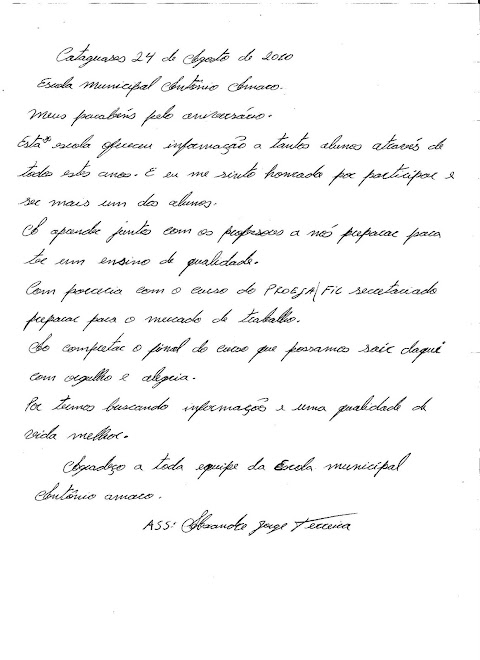 Cataguases 24 de Agosto de 2010
Escola municipal Antônio Amaro.
Meus parabéns pelo aniversário.
Esta escola ofereceu informação a tantos alunos através de
todos estes anos. E eu me sinto honrada por participar e
ser mais um dos alunos.
A aprender juntos com os professores a nós preparar para
ter um ensino de qualidade.
Com parceria com o curso do PROEJA/FIC secretariado
preparar para o mercado de trabalho.
Ao completar o final do curso que possamos sair daqui
com orgulho e alegria.
Por termos buscando informações e uma qualidade de
vida melhor.
Agradeço a toda equipe da Escola municipal
Antônio amaro.
ASS: Jorge Ferreira